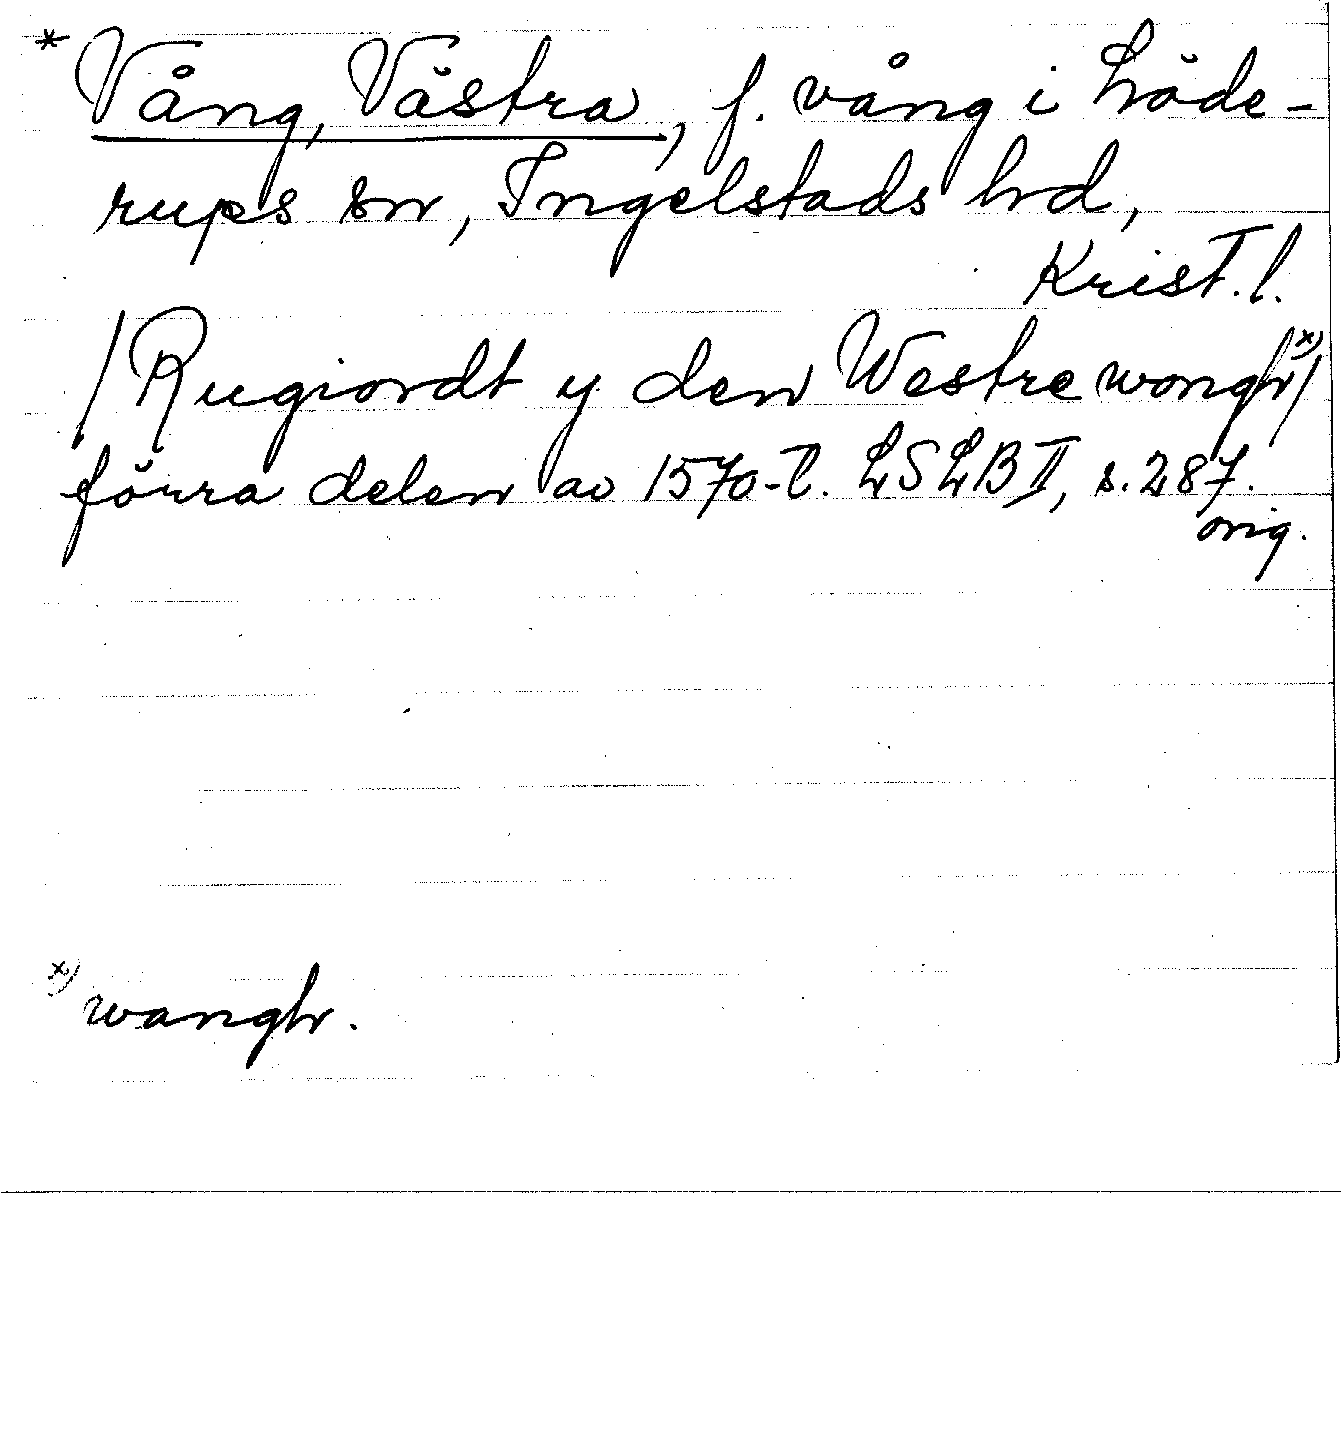 * Vång, Västra, f. vång i Löde-
rups sn, Ingelstads hd,
Krist. l.
/Rugiordt y den Westre wongh x)/
förra delen av 1570-t. LSLB II, s. 287.
orig.
x) wangh.